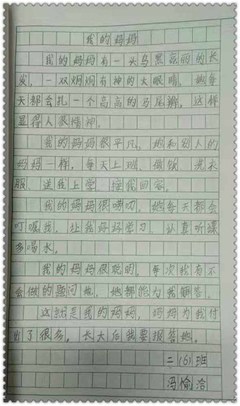 我的妈妈
我的妈妈有一头乌黑亮丽的长
发，一双炯炯有神的大眼睛。她每
天都会扎一个高高的马尾辫，这样
显得人很精神。
我的妈妈很平凡，她和别人的
妈妈一样，每天上班、做饭、洗衣
服、送我上学、接我回家。
我的妈妈很唠叨，她每天都会
叮嘱我，让我好好学习，认真听课
多喝水。
我的妈妈很聪明，每次我有不
会做的题问她，她都能为我解答。
这就是我的妈妈，妈妈为我付
出了很多，长大后我要报答她。
二(6)班
冯愉